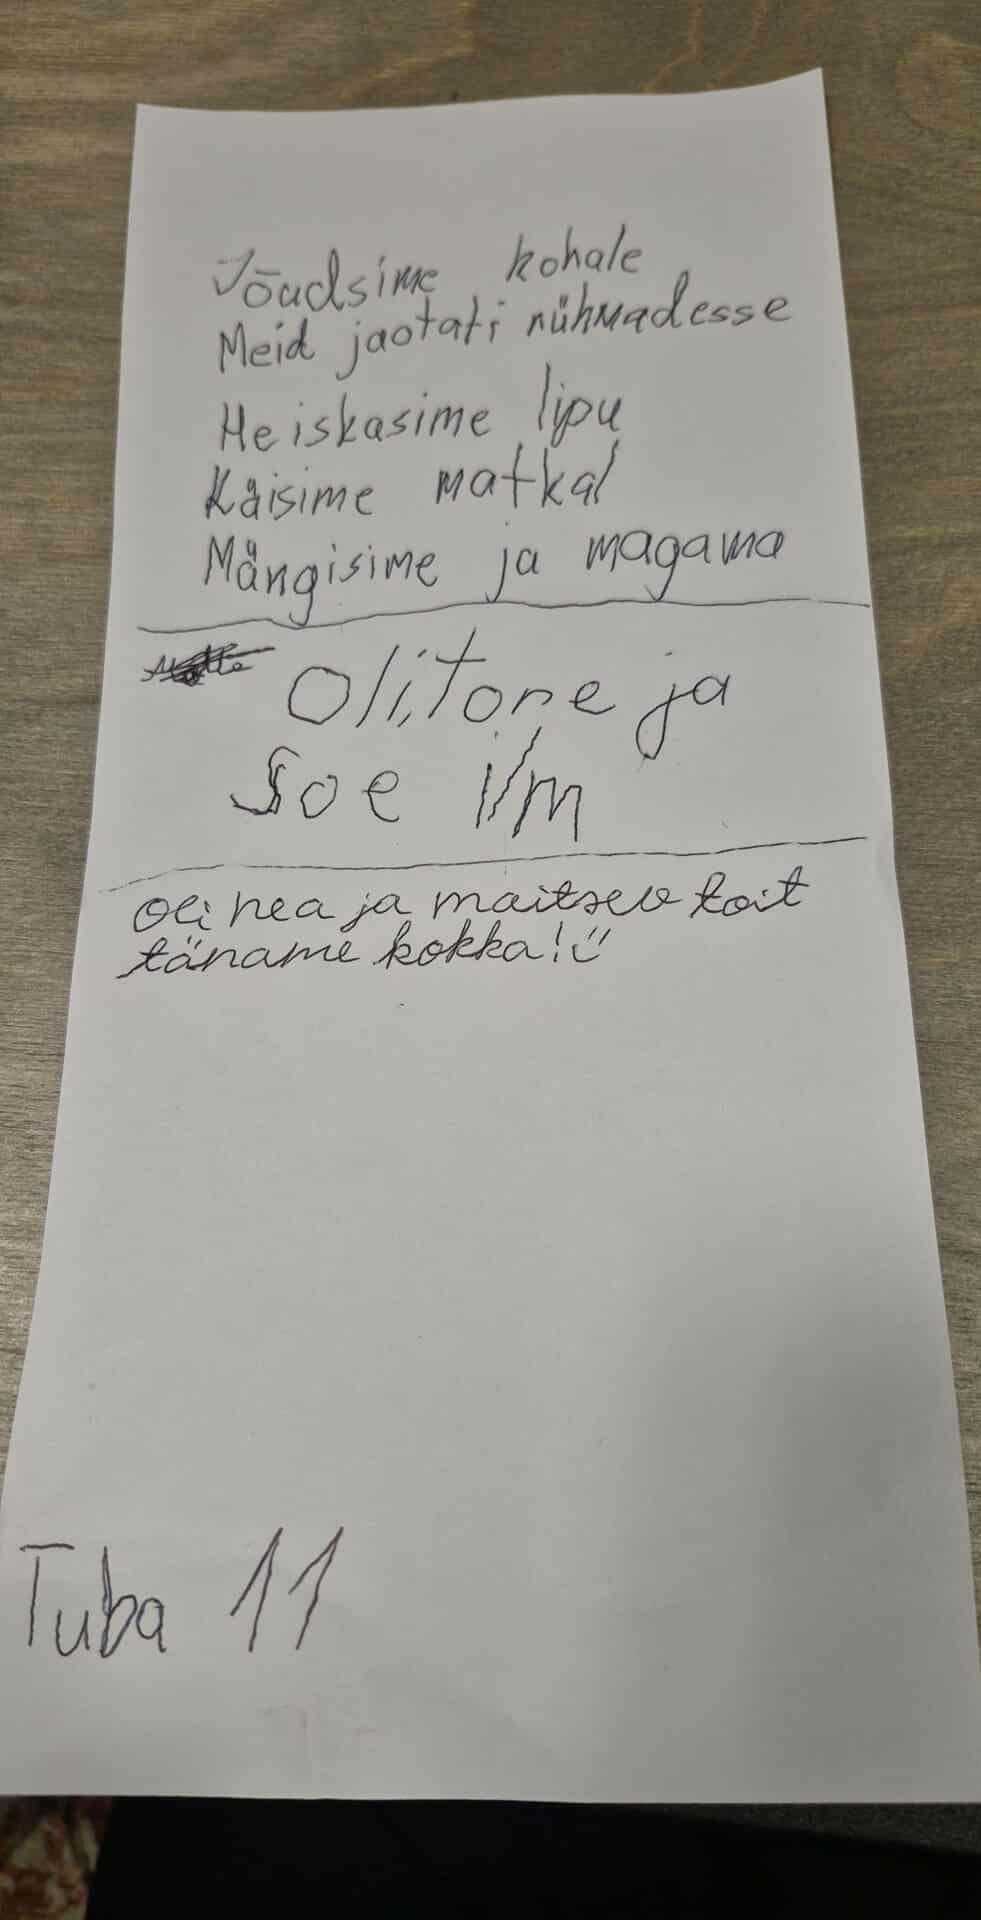 Jõudsime kohale
Meid jaotati rühmadesse
Heiskasime lipu
Käisime matkal
Mängisime ja magama
Oli, tore ja
Soe ilm
Oli hea ja maitsev toit
täname kokka! ü
Tuba 11